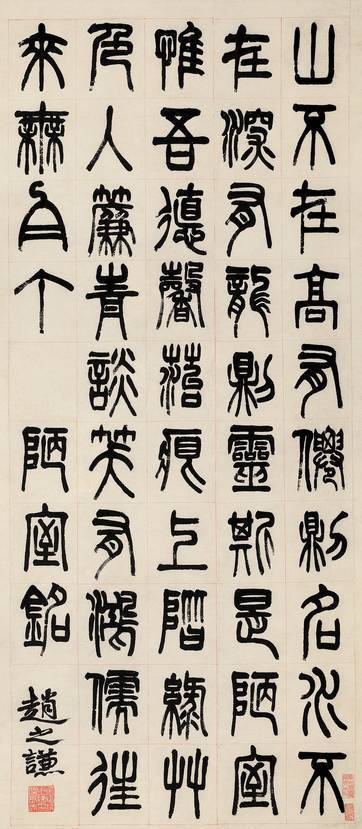 山不在高有僊則名水不
在深有龍則靈斯是陋室
惟吾德馨菭痕上階綠艸
色入簾青談笑有鴻儒往
來無白丁 陋室銘 趙之謙